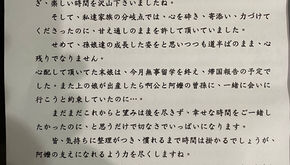 ぎ、楽しい時間を沢山下さいましたね。
そして、私達家族の分岐点では、心を砕き、寄添い、力づけて
くださったのに、甘え通しのままを許して頂いていました。
せめて、孫娘達の成長した姿をと思いつつも道半ばのまま、心
残りでなりません。
心配して頂いてた末娘は、今月無事留学を終え、帰国報告の予定で
した。また上の娘が出産したら阿公と阿嬤の曾孫に、一緒に会いに
行こうと約束していたのに…。
まだまだこれからと望みは後を尽きず、幸せな時間をご一緒し
たかったのに、と思うだけで切なさでいっぱいになります。
皆、気持ちに整理がつき、慣れるまで時間は掛かるでしょうが、
阿嬤の支えになれるよう力を尽くしますね。